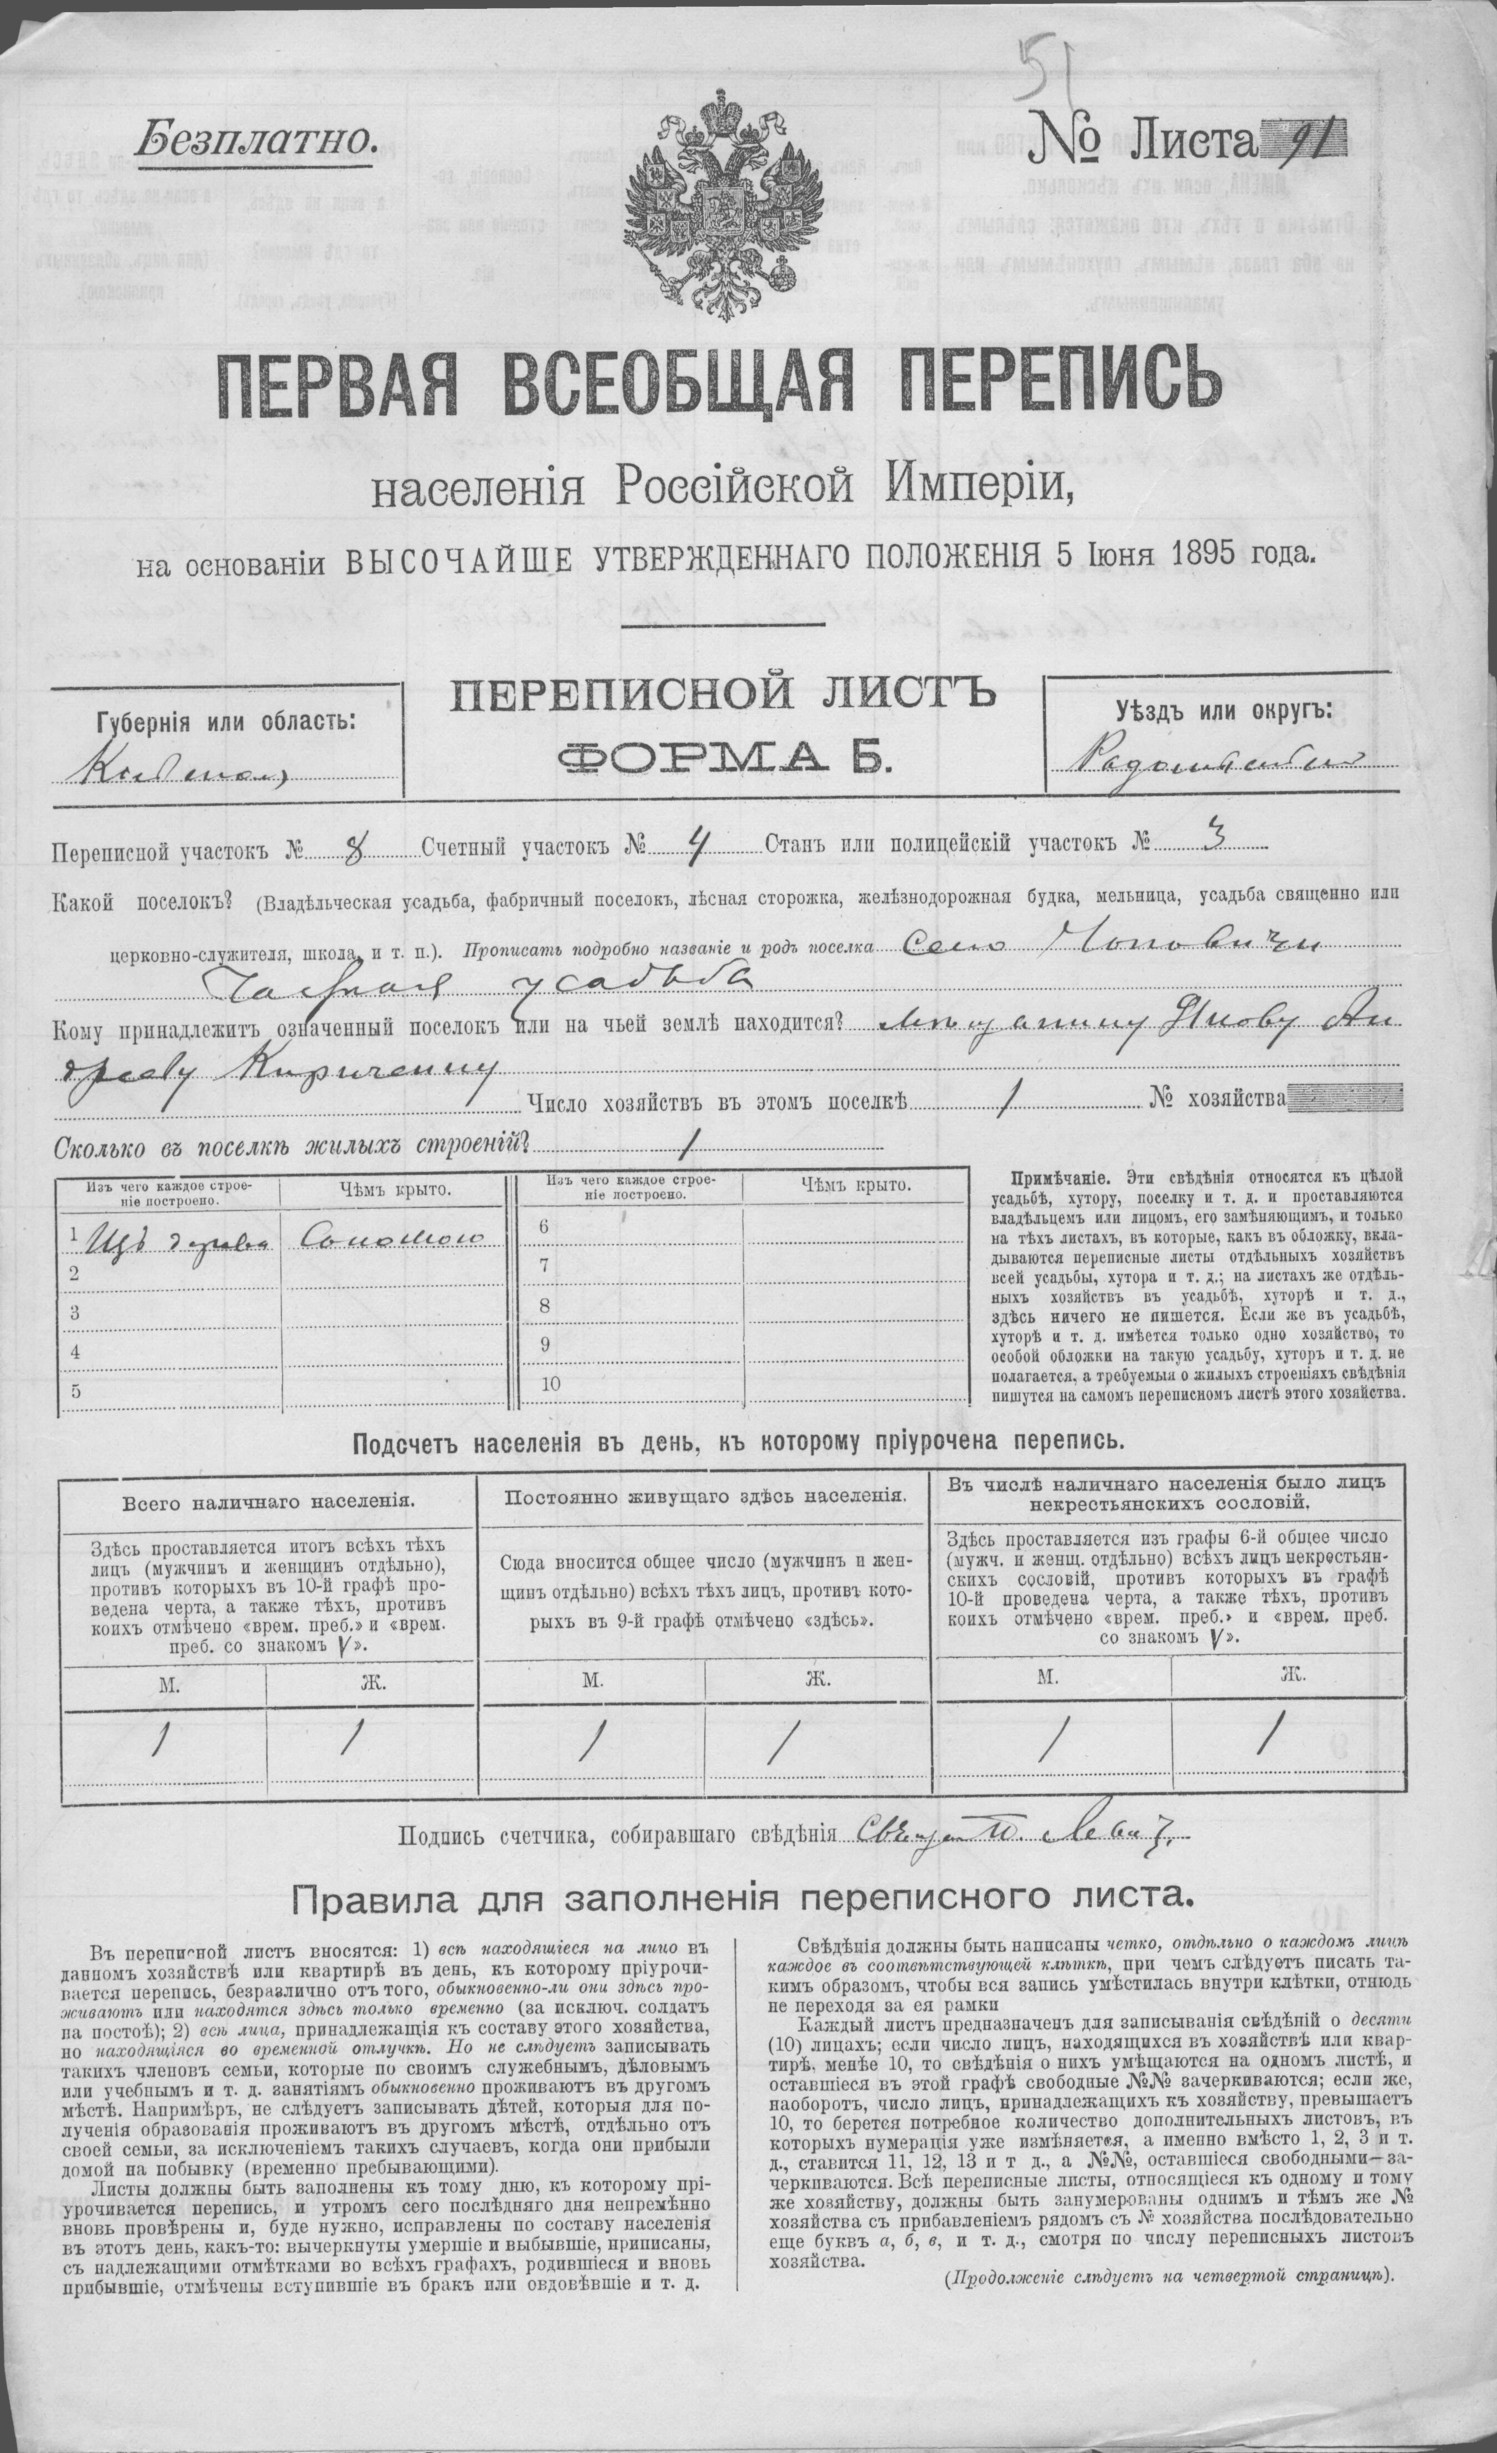 51
Безплатно.
№ Листа 91
ПЕРВАЯ ВСЕОБЩАЯ ПЕРЕПИСЬ
населенія Россійской Имперіи,
на основаніи ВЫСОЧАЙШЕ УТВЕРЖДЕННАГО ПОЛОЖЕНІЯ 5 Іюня 1895 года.
ПЕРЕПИСНОЙ ЛИСТЪ
ФОРМА Б.
Губернія или область:
Уѣздъ или округъ:
Переписной участокъ № 8 Счетный участокъ № 4 Станъ или полицейскій участокъ № 3
Какой поселокъ? (Владѣльческая усадьба, фабричный поселокъ, лѣсная сторожка, желѣзнодорожная будка, мельница, усадьба священно или
церковно-служителя, школа, и т. п.). Прописать подробно названіе и родъ поселка село Чоповичи
Частная усадьба
Кому принадлежитъ означенный поселокъ или на чьей землѣ находится? мѣщанину
Число хозяйствъ въ этомъ поселкѣ 1 № хозяйства
Сколько въ поселкѣ жилыхъ строеній? 1
Изъ чего каждое строе-
ніе построено.
Чѣмъ крыто.
Изъ чего каждое строе-
ніе построено.
Чѣмъ крыто.
1 Изъ дерева Соломою
2
3
4
5
6
7
8
9
10
Примѣчаніе. Эти свѣдѣнія относятся къ цѣлой
усадьбѣ, хутору, поселку и т. д. и проставляются
владѣльцемъ или лицомъ, его замѣняющимъ, и только
на тѣхъ листахъ, въ которые, какъ въ обложку, вкла-
дываются переписные листы отдѣльныхъ хозяйствъ
всей усадьбы, хутора и т. д.; на листахъ же отдѣль-
ныхъ хозяйствъ въ усадьбѣ, хуторѣ и т. д.,
здѣсь ничего не пишется. Если же въ усадьбѣ,
хуторѣ и т. д. имѣется только одно хозяйство, то
особой обложки на такую усадьбу, хуторъ и т. д. не
полагается, а требуемыя о жилыхъ строеніяхъ свѣдѣнія
пишутся на самомъ переписномъ листѣ этого хозяйства.
Подсчетъ населенія въ день, къ которому пріурочена перепись.
Всего наличнаго населенія.
Здѣсь проставляется итогъ всѣхъ тѣхъ
лицъ (мужчинъ и женщинъ отдѣльно),
противъ которыхъ въ 10-й графѣ про-
ведена черта, а также тѣхъ, противъ
коихъ отмѣчено «врем. преб.» и «врем.
преб. со знакомъ V».
М. Ж.
1 1
Постоянно живущаго здѣсь населенія.
Сюда вносится общее число (мужчинъ и жен-
щинъ отдѣльно) всѣхъ тѣхъ лицъ, противъ кото-
рыхъ въ 9-й графѣ отмѣчено «здѣсь».
М. Ж.
1 1
Въ числѣ наличнаго населенія было лицъ
некрестьянскихъ сословій.
Здѣсь проставляется изъ графы 6-й общее число
(мужч. и женщ. отдѣльно) всѣхъ лицъ некрестьян-
скихъ сословій, противъ которыхъ въ графѣ
10-й проведена черта, а также тѣхъ, противъ
коихъ отмѣчено «врем. преб.» и «врем. преб.
со знакомъ V».
М. Ж.
1 1
Подпись счетчика, собиравшаго свѣдѣнія
Правила для заполненія переписного листа.
Въ переписной листъ вносятся: 1) всѣ находящіеся на лицо въ
данномъ хозяйствѣ или квартирѣ въ день, къ которому пріурочи-
вается перепись, безразлично отъ того, обыкновенно-ли они здѣсь про-
живаютъ или находятся здѣсь только временно (за исключ. солдатъ
на постоѣ); 2) всѣ лица, принадлежащія къ составу этого хозяйства,
но находящіяся во временной отлучкѣ. Но не слѣдуетъ записывать
такихъ членовъ семьи, которые по своимъ служебнымъ, дѣловымъ
или учебнымъ и т. д. занятіямъ обыкновенно проживаютъ въ другомъ
мѣстѣ. Напримѣръ, не слѣдуетъ записывать дѣтей, которыя для по-
лученія образованія проживаютъ въ другомъ мѣстѣ, отдѣльно отъ
своей семьи, за исключеніемъ такихъ случаевъ, когда они прибыли
домой на побывку (временно пребывающими).
Листы должны быть заполнены къ тому дню, къ которому прі-
урочивается перепись, и утромъ сего послѣдняго дня непремѣнно
вновь провѣрены и, буде нужно, исправлены по составу населенія
въ этотъ день, какъ-то: вычеркнуты умершіе и выбывшіе, приписаны,
съ надлежащими отмѣтками во всѣхъ графахъ, родившіеся и вновь
прибывшіе, отмѣчены вступившіе въ бракъ или овдовѣвшіе и т. д.
Свѣдѣнія должны быть написаны четко, отдѣльно о каждомъ лицѣ
каждое въ соотвѣтствующей клѣткѣ, при чемъ слѣдуетъ писать та-
кимъ образомъ, чтобы вся запись умѣстилась внутри клѣтки, отнюдь
не переходя за ея рамки
Каждый листъ предназначенъ для записыванія свѣдѣній о десяти
(10) лицахъ; если число лицъ, находящихся въ хозяйствѣ или квар-
тирѣ, менѣе 10, то свѣдѣнія о нихъ умѣщаются на одномъ листѣ, и
оставшіеся въ этой графѣ свободные №№ зачеркиваются; если же,
наоборотъ, число лицъ, принадлежащихъ къ хозяйству, превышаетъ
10, то берется потребное количество дополнительныхъ листовъ, въ
которыхъ нумерація уже измѣняется, а именно вмѣсто 1, 2, 3 и т.
д., ставится 11, 12, 13 и т д., а №№, оставшіеся свободными—за-
черкиваются. Всѣ переписные листы, относящіеся къ одному и тому
же хозяйству, должны быть занумерованы однимъ и тѣмъ же №
хозяйства съ прибавленіемъ рядомъ съ № хозяйства послѣдовательно
еще буквъ а, б, в, и т. д., смотря по числу переписныхъ листовъ
хозяйства.
(Продолженіе слѣдуетъ на четвертой страницѣ).